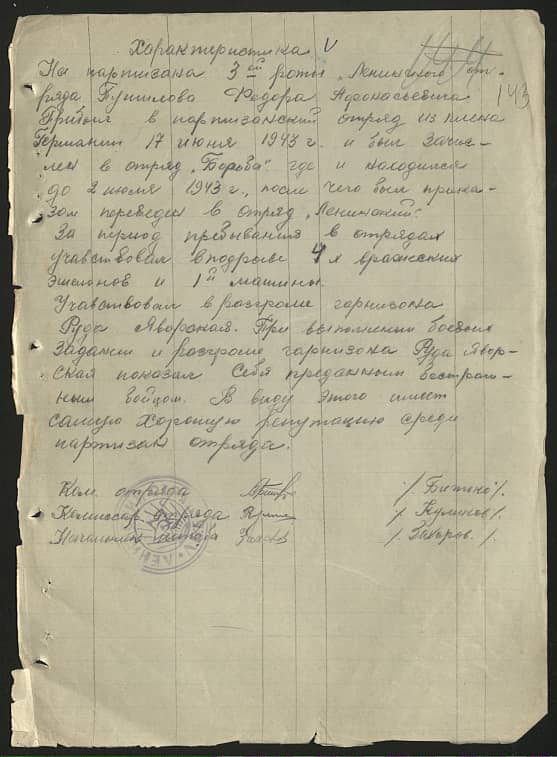 Характеристика V
На партизана 3ей роты "Ленинского" от-
ряда Пушилова Федора Афонасьевича 143
Прибыл в партизанский отряд из плена
Германии 17 июня 1943 г. и был зачис-
лен в отряд "Борьба" где и находился
до 2 июля 1943 г., после чего был прика-
зом переведен в отряд "Ленинский".
За период пребывания в отрядах
учавствовал в подрыве 4х вражеских
эшелонов и 1й машины.
Учавствовал в розгроме горнизона
Руда Яворская. При выполнении боевых
задании и розгроме гарнизона Руда Явор-
ская показал себя преданным бестраш-
ным бойцом. В виду этого имеет
самую хорошую репутацию среди
партизан отряда.
Ком. отряда /
Комиссар отряда /Кулишков/
Начальник штаба /Захаров./